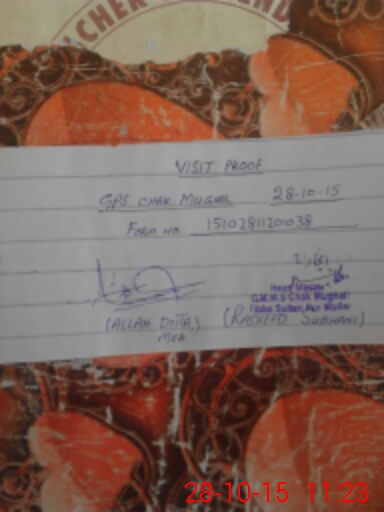 VISIT PROOF
GPS CHAK MUGHAL 28-10-15
FORM NO. 15102811201038
(ALLAH DITTA)
MEA
Head Master
G.M.M.S Chak Mughal
Tibba Sultan Pur Mailsi
(RASHEED SUBHANI)
28-10-15 11:23